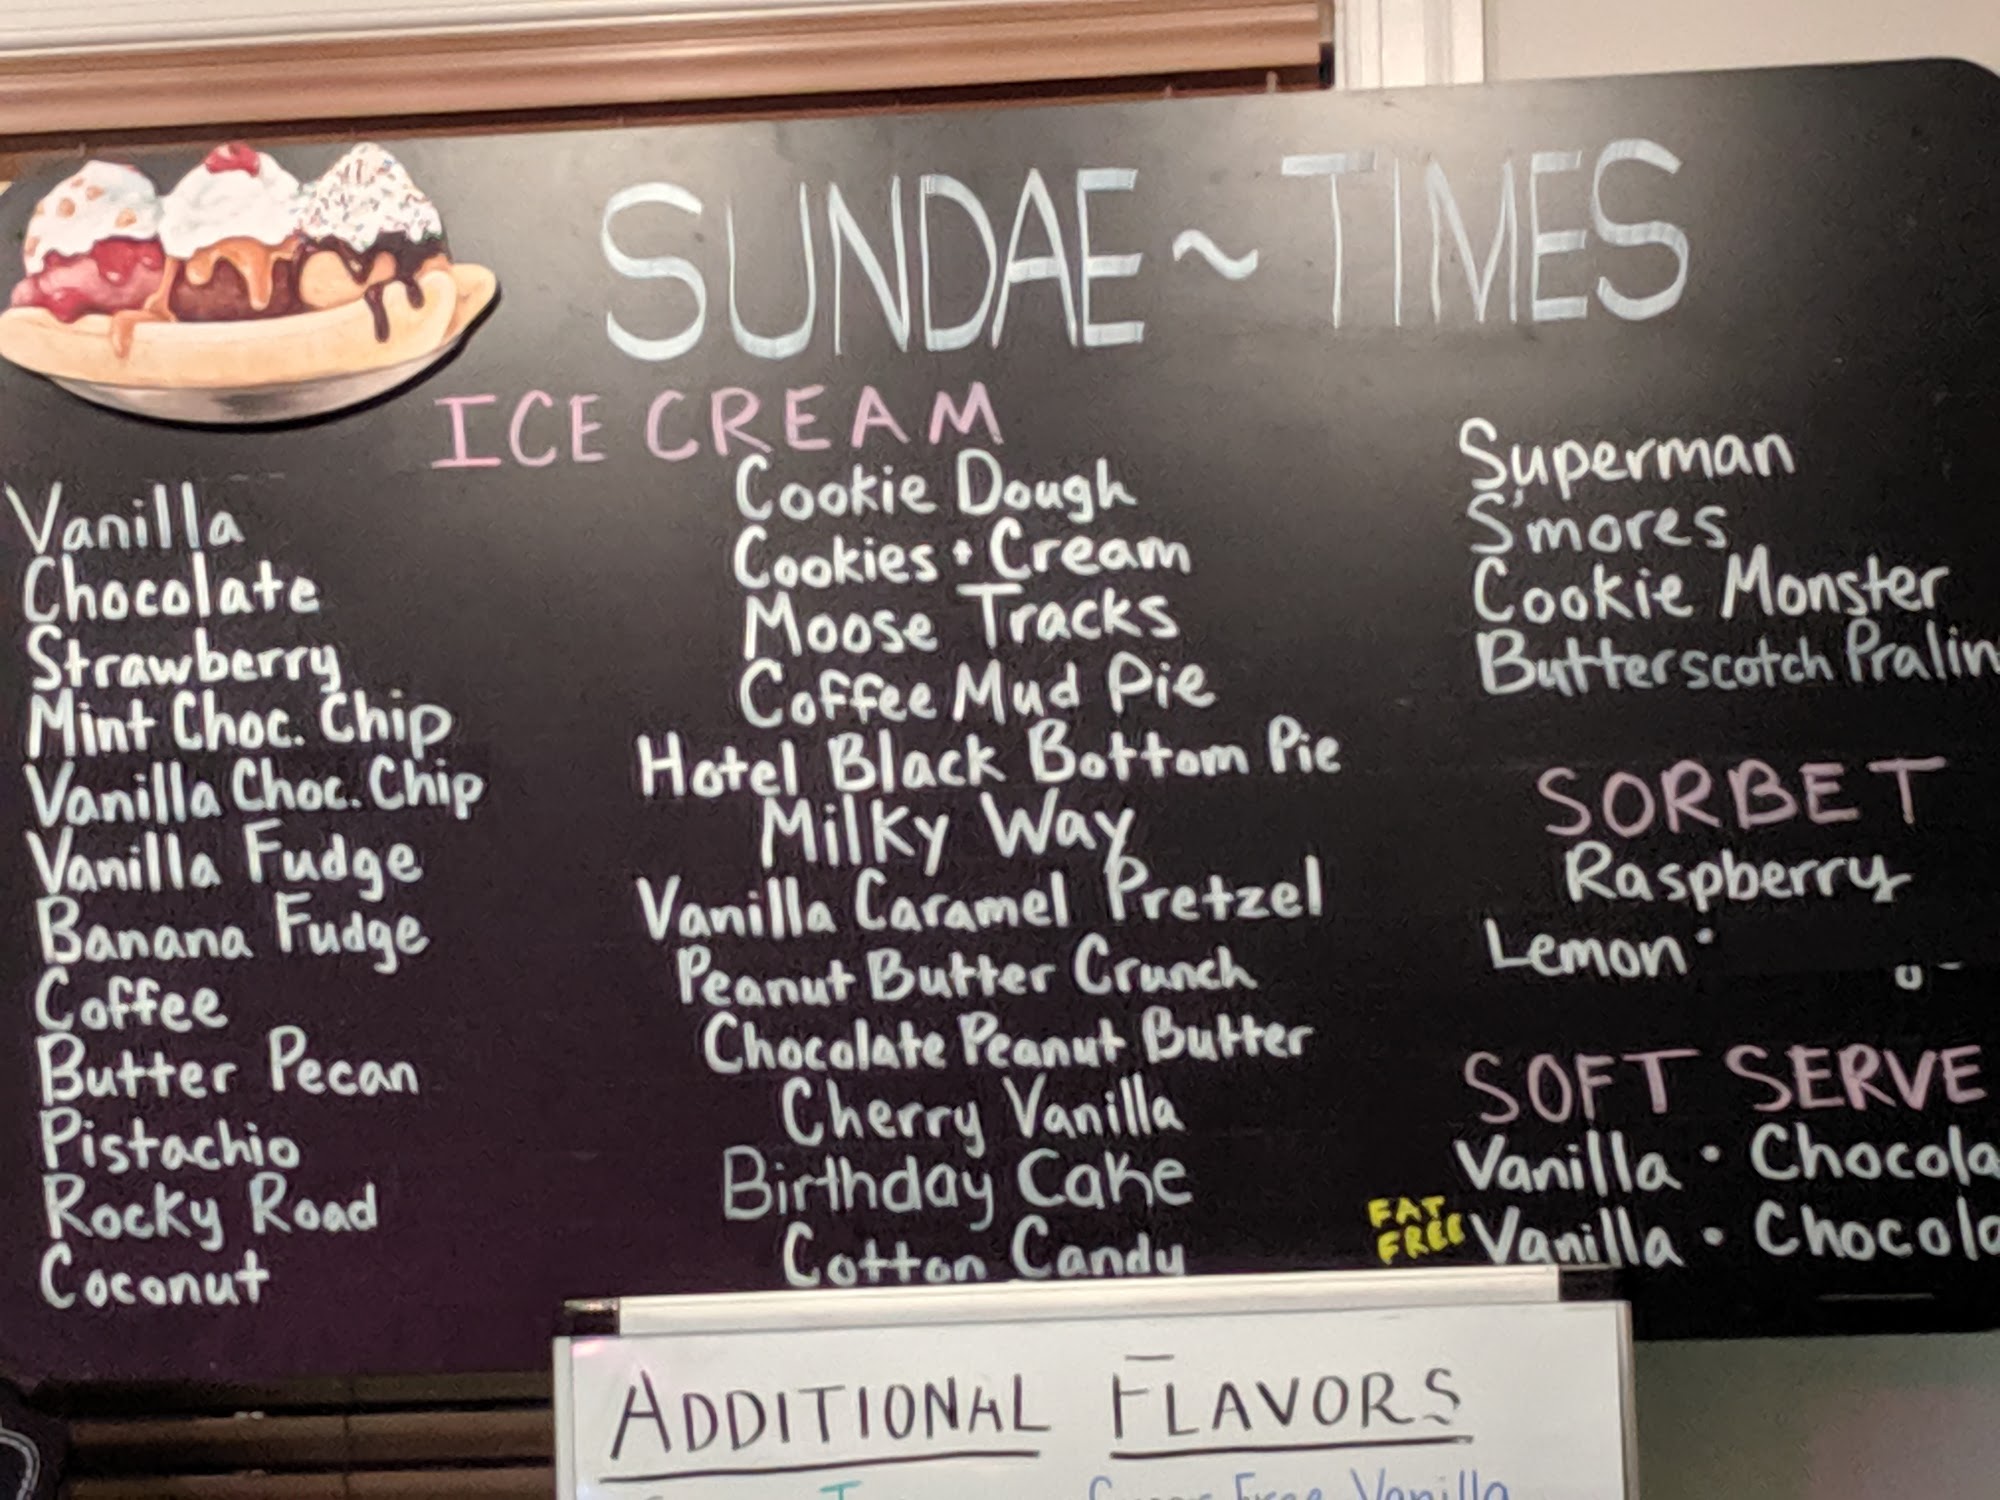 SUNDAE ~ TIMES
ICE CREAM
Vanilla
Chocolate
Strawberry
Mint Choc. Chip
Vanilla Choc. Chip
Vanilla Fudge
Banana Fudge
Coffee
Butter Pecan
Pistachio
Rocky Road
Coconut
Cookie Dough
Cookies + Cream
Moose Tracks
Coffee Mud Pie
Hotel Black Bottom Pie
Milky Way
Vanilla Caramel Pretzel
Peanut Butter Crunch
Chocolate Peanut Butter
Cherry Vanilla
Birthday Cake
Cotton Candy
Superman
S'mores
Cookie Monster
Butterscotch Pralin
SORBET
Raspberry
Lemon •
SOFT SERVE
Vanilla • Chocola
FAT FREE Vanilla • Chocola
ADDITIONAL FLAVORS
Vanilla